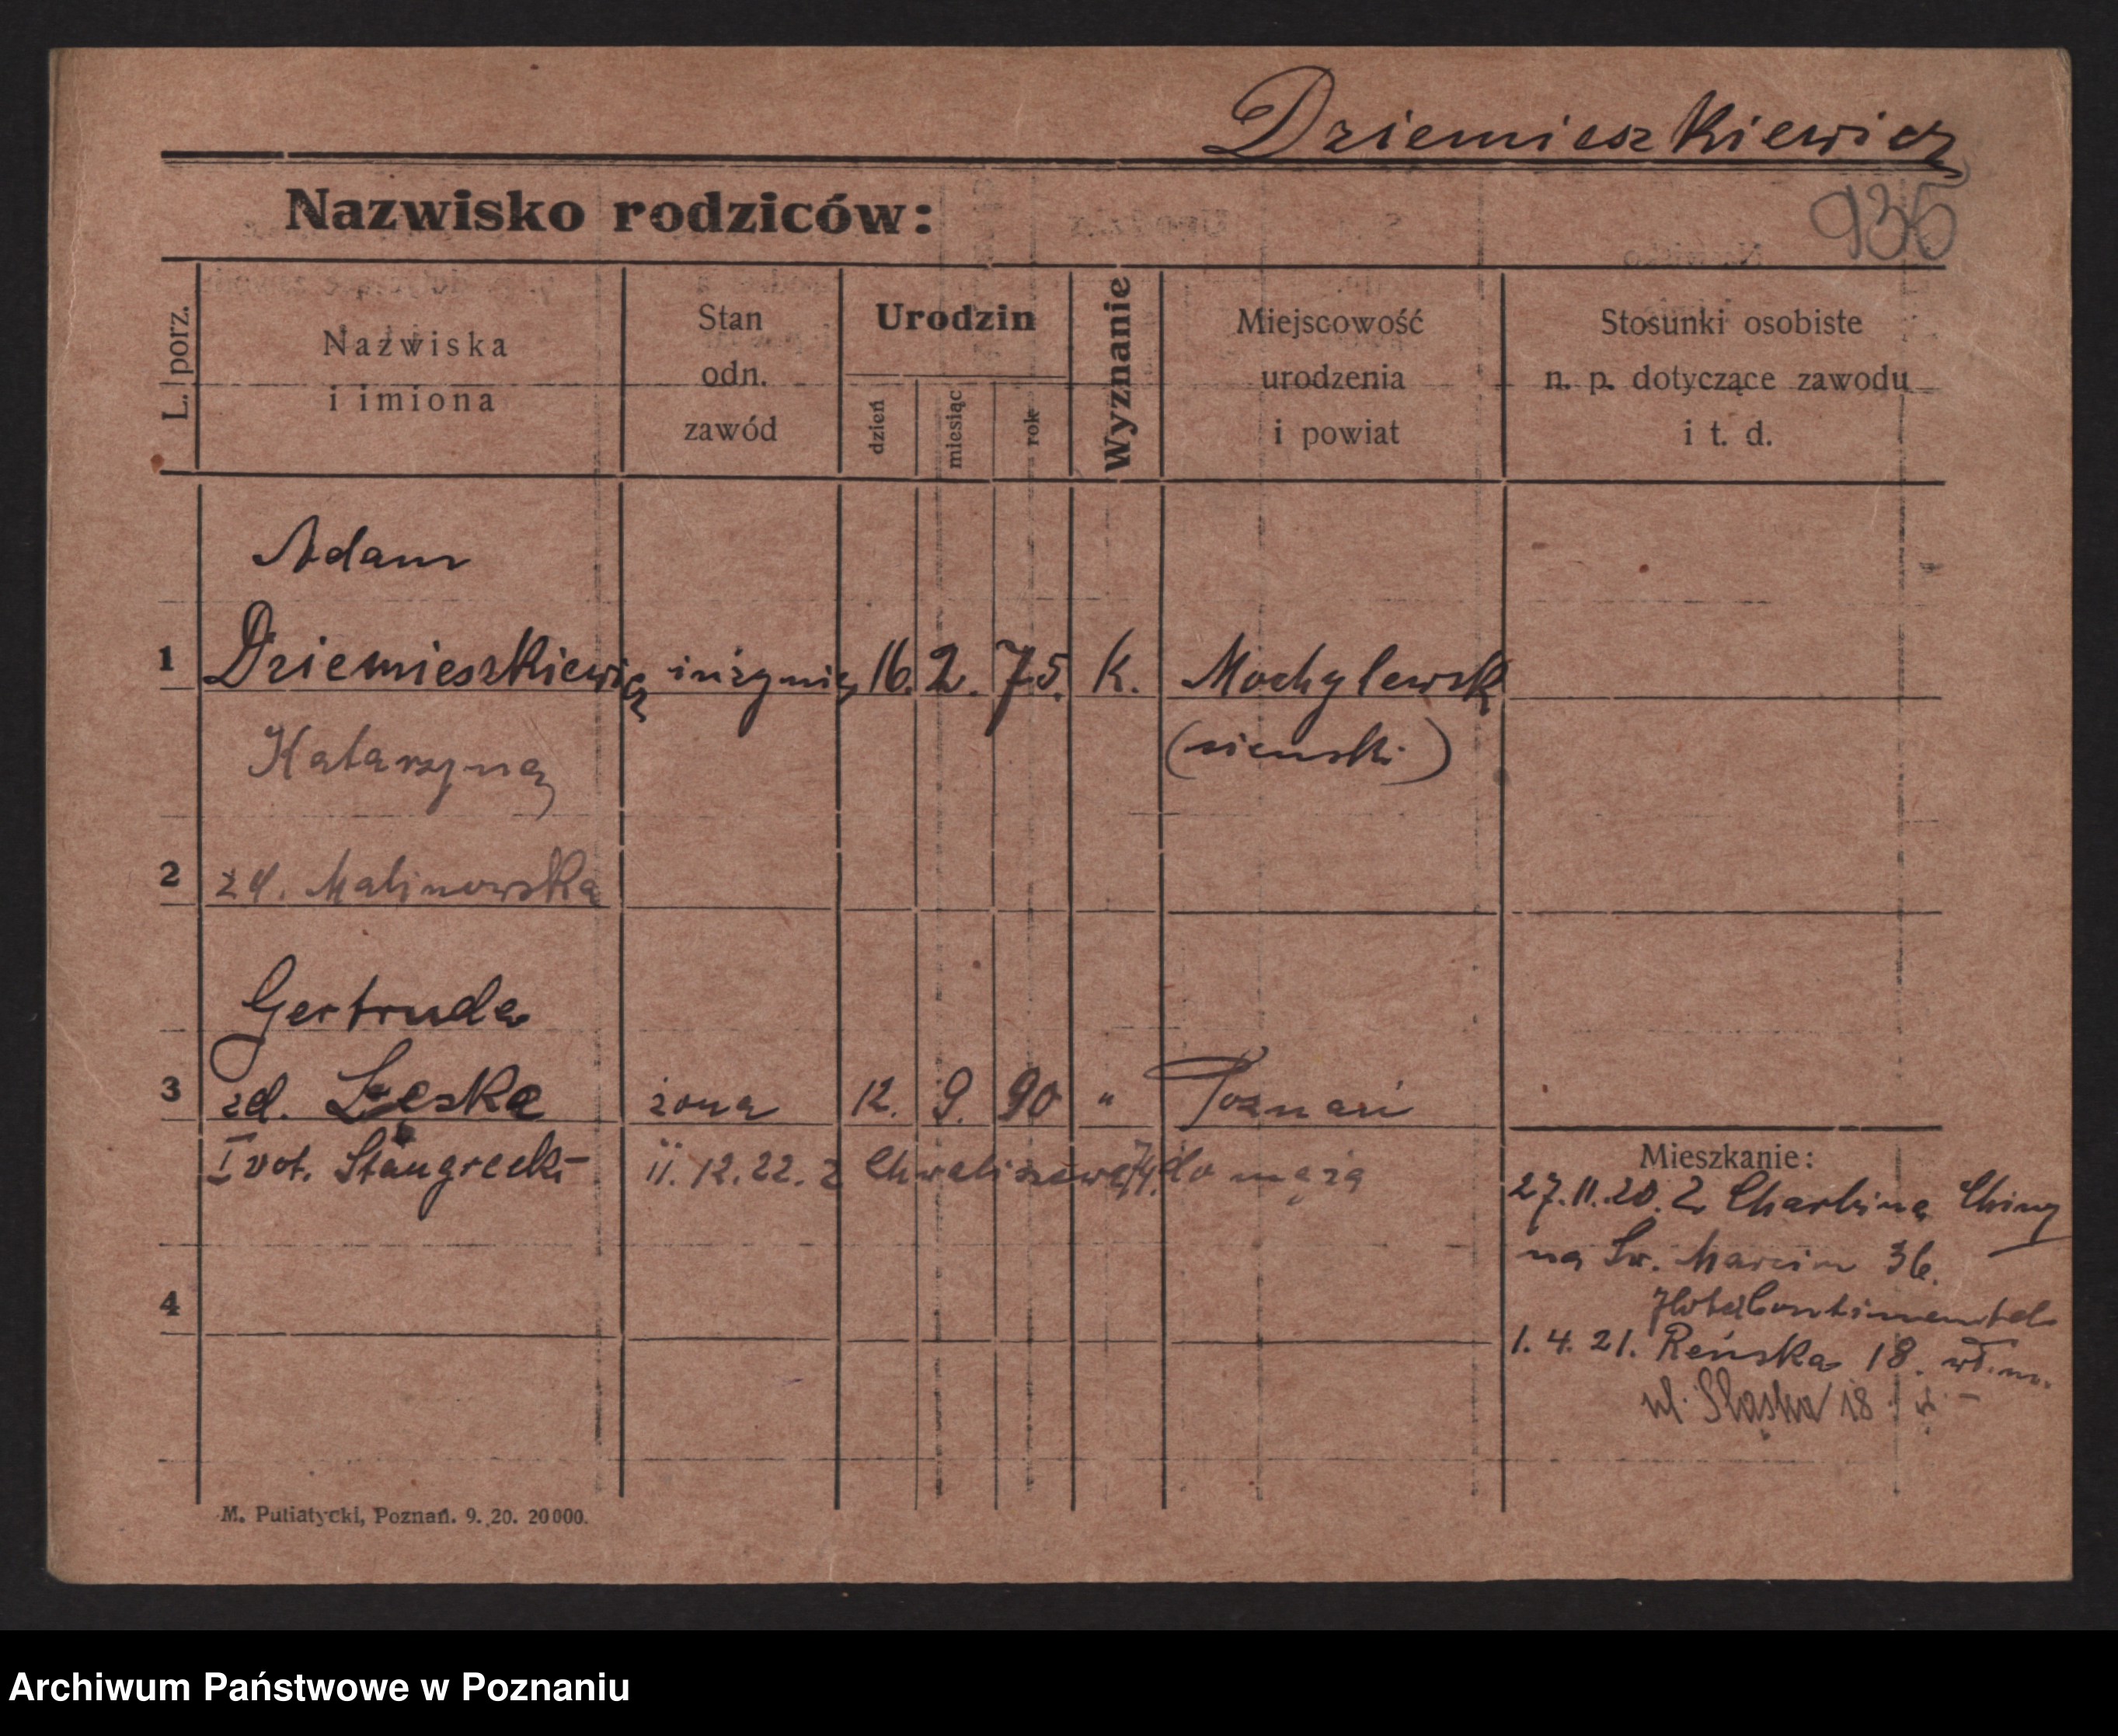 Dziemieszkiewicz
Nazwisko rodziców:
935
L. porz.
Nazwiska
i imiona
Stan
odn.
zawód
Urodzin
dzień
miesiąc
rok
Wyznanie
Miejscowość
urodzenia
i powiat
Stosunki osobiste
n. p. dotyczące zawodu
i t. d.
Adam
1 Dziemieszkiewicz inżynier 16. 2. 75. K. Mochylewsk
Katarzyna
2 zd. Malinowska
Gertruda
3 zd. Łęska żona 12. 9. 90 " Poznań
I vot. Stangrecki 11. 12. 22. z Chwaliszewa 74. do męża
Mieszkanie:
27. 11. 20. z Charbina Chiny
na Św. Marcin 36.
Hotel Continental
4
1. 4. 21. Reńska 18. wł. m.
ul. Śląska 18
M. Putiatycki, Poznań. 9. 20. 20000.
Archiwum Państwowe w Poznaniu